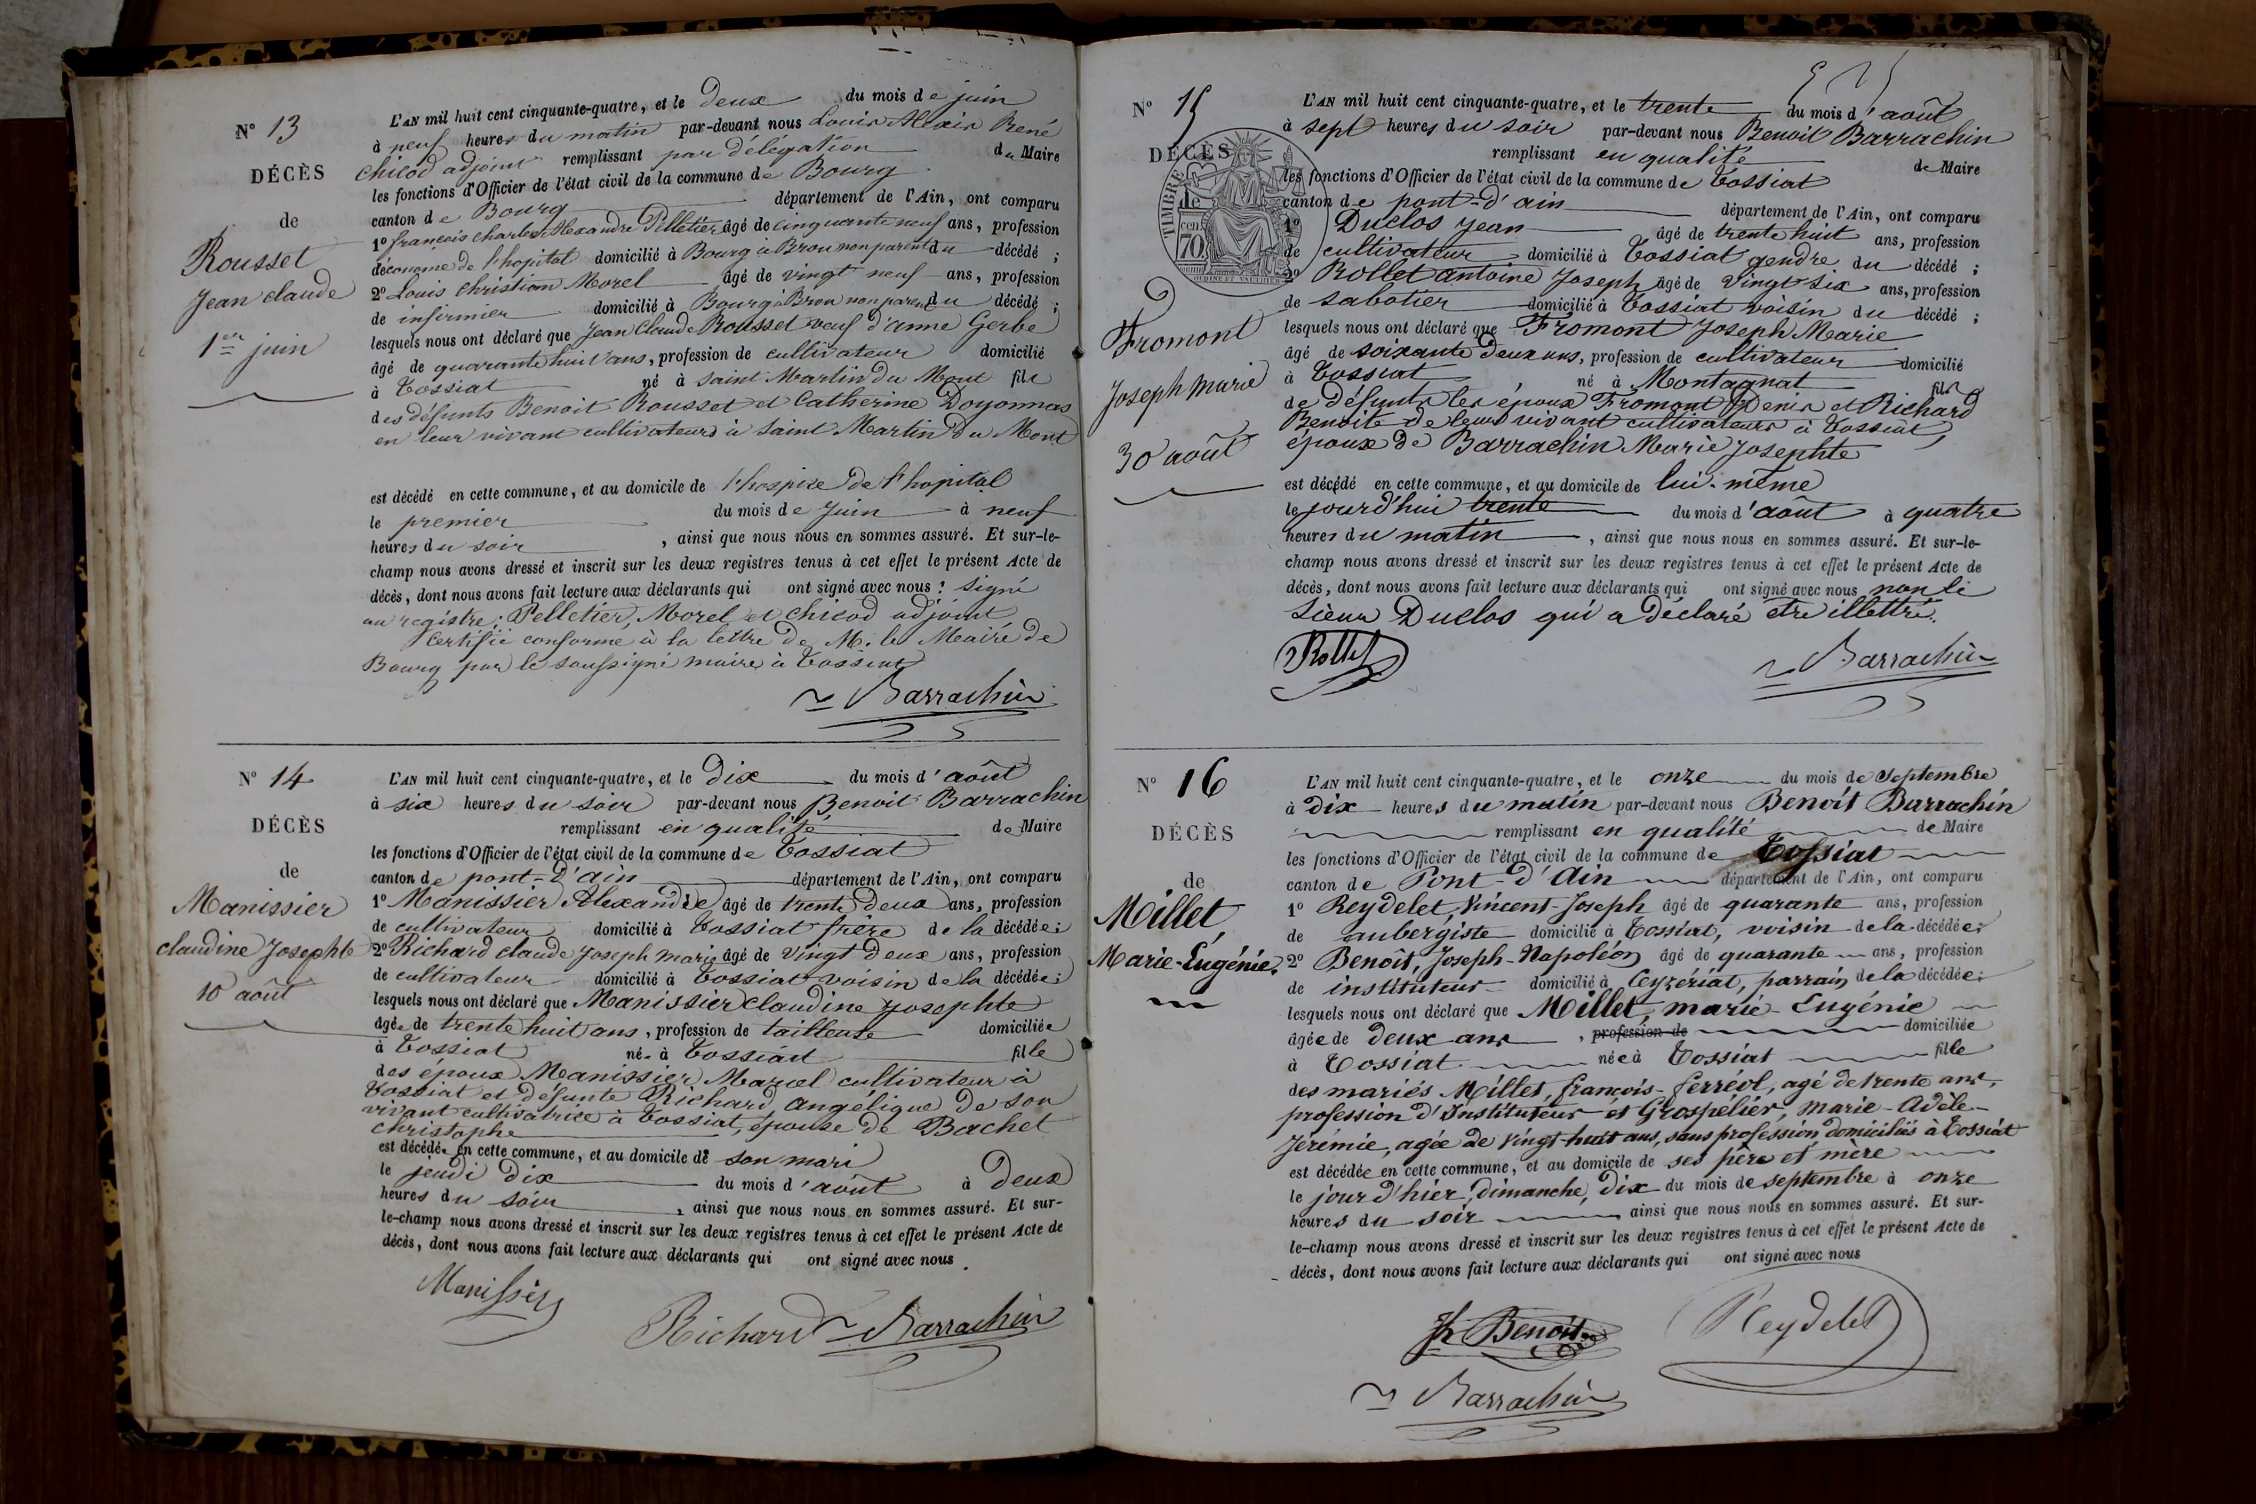 N° 13
DÉCÈS
de
Rousset
Jean claude
1er juin
L'AN mil huit cent cinquante-quatre, et le deux du mois de juin
à neuf heures du matin par-devant nous Louis Alexis René
Chicod adjoint remplissant par délégation du Maire
les fonctions d'Officier de l'état civil de la commune de Bourg
canton de Bourg département de l'Ain, ont comparu
1° françois Charles Alexandre Pelletier âgé de cinquante neuf ans, profession
d'économe de l'hopital domicilié à Bourg à Brou non parent du décédé ;
2° Louis Christian Morel âgé de vingt neuf ans, profession
de infirmier domicilié à Bourg à Brou non parent du décédé ;
lesquels nous ont déclaré que Jean Claude Rousset veuf d'anne Gerbe
âgé de quarante huit ans, profession de cultivateur domicilié
à Tossiat né à saint Martin du Mont fils
des défunts Benoit Rousset et Catherine Doyonnas
en leur vivant cultivateurs à Saint Martin du Mont
est décédé en cette commune, et au domicile de l'hospice de l'hopital
le premier du mois de Juin à neuf
heures du soir , ainsi que nous nous en sommes assuré. Et sur-le-
champ nous avons dressé et inscrit sur les deux registres tenus à cet effet le présent Acte de
décès, dont nous avons fait lecture aux déclarants qui ont signé avec nous : signé
au registre : Pelletier, Morel et Chicod adjoint
Certifié conforme à la lettre de M. le Maire de
Bourg par le soussigné maire à Tossiat
Barrachin
N° 14
DÉCÈS
de
Manissier
claudine Josephte
10 août
L'AN mil huit cent cinquante-quatre, et le dix du mois d'août
à six heures du soir par-devant nous Benoit Barrachin
remplissant en qualité de Maire
les fonctions d'Officier de l'état civil de la commune de Tossiat
canton de pont-d'ain département de l'Ain, ont comparu
1° Manissier Alexandre âgé de trente deux ans, profession
de cultivateur domicilié à Tossiat frère de la décédée ;
2° Richard claude Joseph marie âgé de vingt deux ans, profession
de cultivateur domicilié à Tossiat voisin de la décédée ;
lesquels nous ont déclaré que Manissier claudine Josephte
âgée de trente huit ans, profession de tailleuse domiciliée
à Tossiat née à Tossiat fille
des époux Manissier Marcel cultivateur à
Tossiat et défunte Richard angélique de son
vivant cultivatrice à Tossiat, épouse de Bachet
christophe
est décédée en cette commune, et au domicile de son mari
le jeudi dix du mois d'août à deux
heures du soir , ainsi que nous nous en sommes assuré. Et sur-
le-champ nous avons dressé et inscrit sur les deux registres tenus à cet effet le présent Acte de
décès, dont nous avons fait lecture aux déclarants qui ont signé avec nous .
Manissier
Richard Barrachin
N° 15
DÉCÈS
TIMBRE
de
70
Fromont
Joseph marie
30 août
L'AN mil huit cent cinquante-quatre, et le trente du mois d'août
à sept heures du soir par-devant nous Benoit Barrachin
remplissant en qualité de Maire
les fonctions d'Officier de l'état civil de la commune de Tossiat
canton de pont-d'ain département de l'Ain, ont comparu
1° Duclos Jean âgé de trente huit ans, profession
de cultivateur domicilié à Tossiat gendre du décédé ;
2° Rollet antoine Joseph âgé de vingt six ans, profession
de sabotier domicilié à Tossiat voisin du décédé ;
lesquels nous ont déclaré que Fromont Joseph Marie
âgé de soixante deux ans, profession de cultivateur domicilié
à Tossiat né à Montagnat fils
de défunts les époux Fromont Denis et Richard
Benoite de leur vivant cultivateurs à Tossiat,
époux de Barrachin Marie Josephte
est décédé en cette commune, et au domicile de lui-même
le jourd'hui trente du mois d'août à quatre
heures du matin , ainsi que nous nous en sommes assuré. Et sur-le-
champ nous avons dressé et inscrit sur les deux registres tenus à cet effet le présent Acte de
décès, dont nous avons fait lecture aux déclarants qui ont signé avec nous non le
sieur Duclos qui a déclaré être illettré.
Rollet
Barrachin
N° 16
DÉCÈS
de
Millet,
Marie-Eugénie.
L'AN mil huit cent cinquante-quatre, et le onze du mois de septembre
à dix heures du matin par-devant nous Benoît Barrachin
remplissant en qualité de Maire
les fonctions d'Officier de l'état civil de la commune de Tossiat
canton de Pont-d'Ain département de l'Ain, ont comparu
1° Reydelet, Vincent-Joseph âgé de quarante ans, profession
de aubergiste domicilié à Tossiat, voisin de la décédée ;
2° Benoît, Joseph-Napoléon âgé de quarante ans, profession
de instituteur domicilié à Ceyzériat, parrain de la décédée ;
lesquels nous ont déclaré que Millet, marie-Eugénie
âgée de deux ans , profession de domiciliée
à Tossiat née à Tossiat fille
des mariés Millet, françois-ferréol, agé de trente ans,
profession d'Instituteur et Grospélier, marie-Adèle-
Jérémie, agée de vingt-huit ans, sans profession domiciliés à Tossiat
est décédée en cette commune, et au domicile de ses père et mère
le jour d'hier, dimanche, dix du mois de septembre à onze
heures du soir ainsi que nous nous en sommes assuré. Et sur-
le-champ nous avons dressé et inscrit sur les deux registres tenus à cet effet le présent Acte de
décès, dont nous avons fait lecture aux déclarants qui ont signé avec nous
Benoît
Reydelet
Barrachin